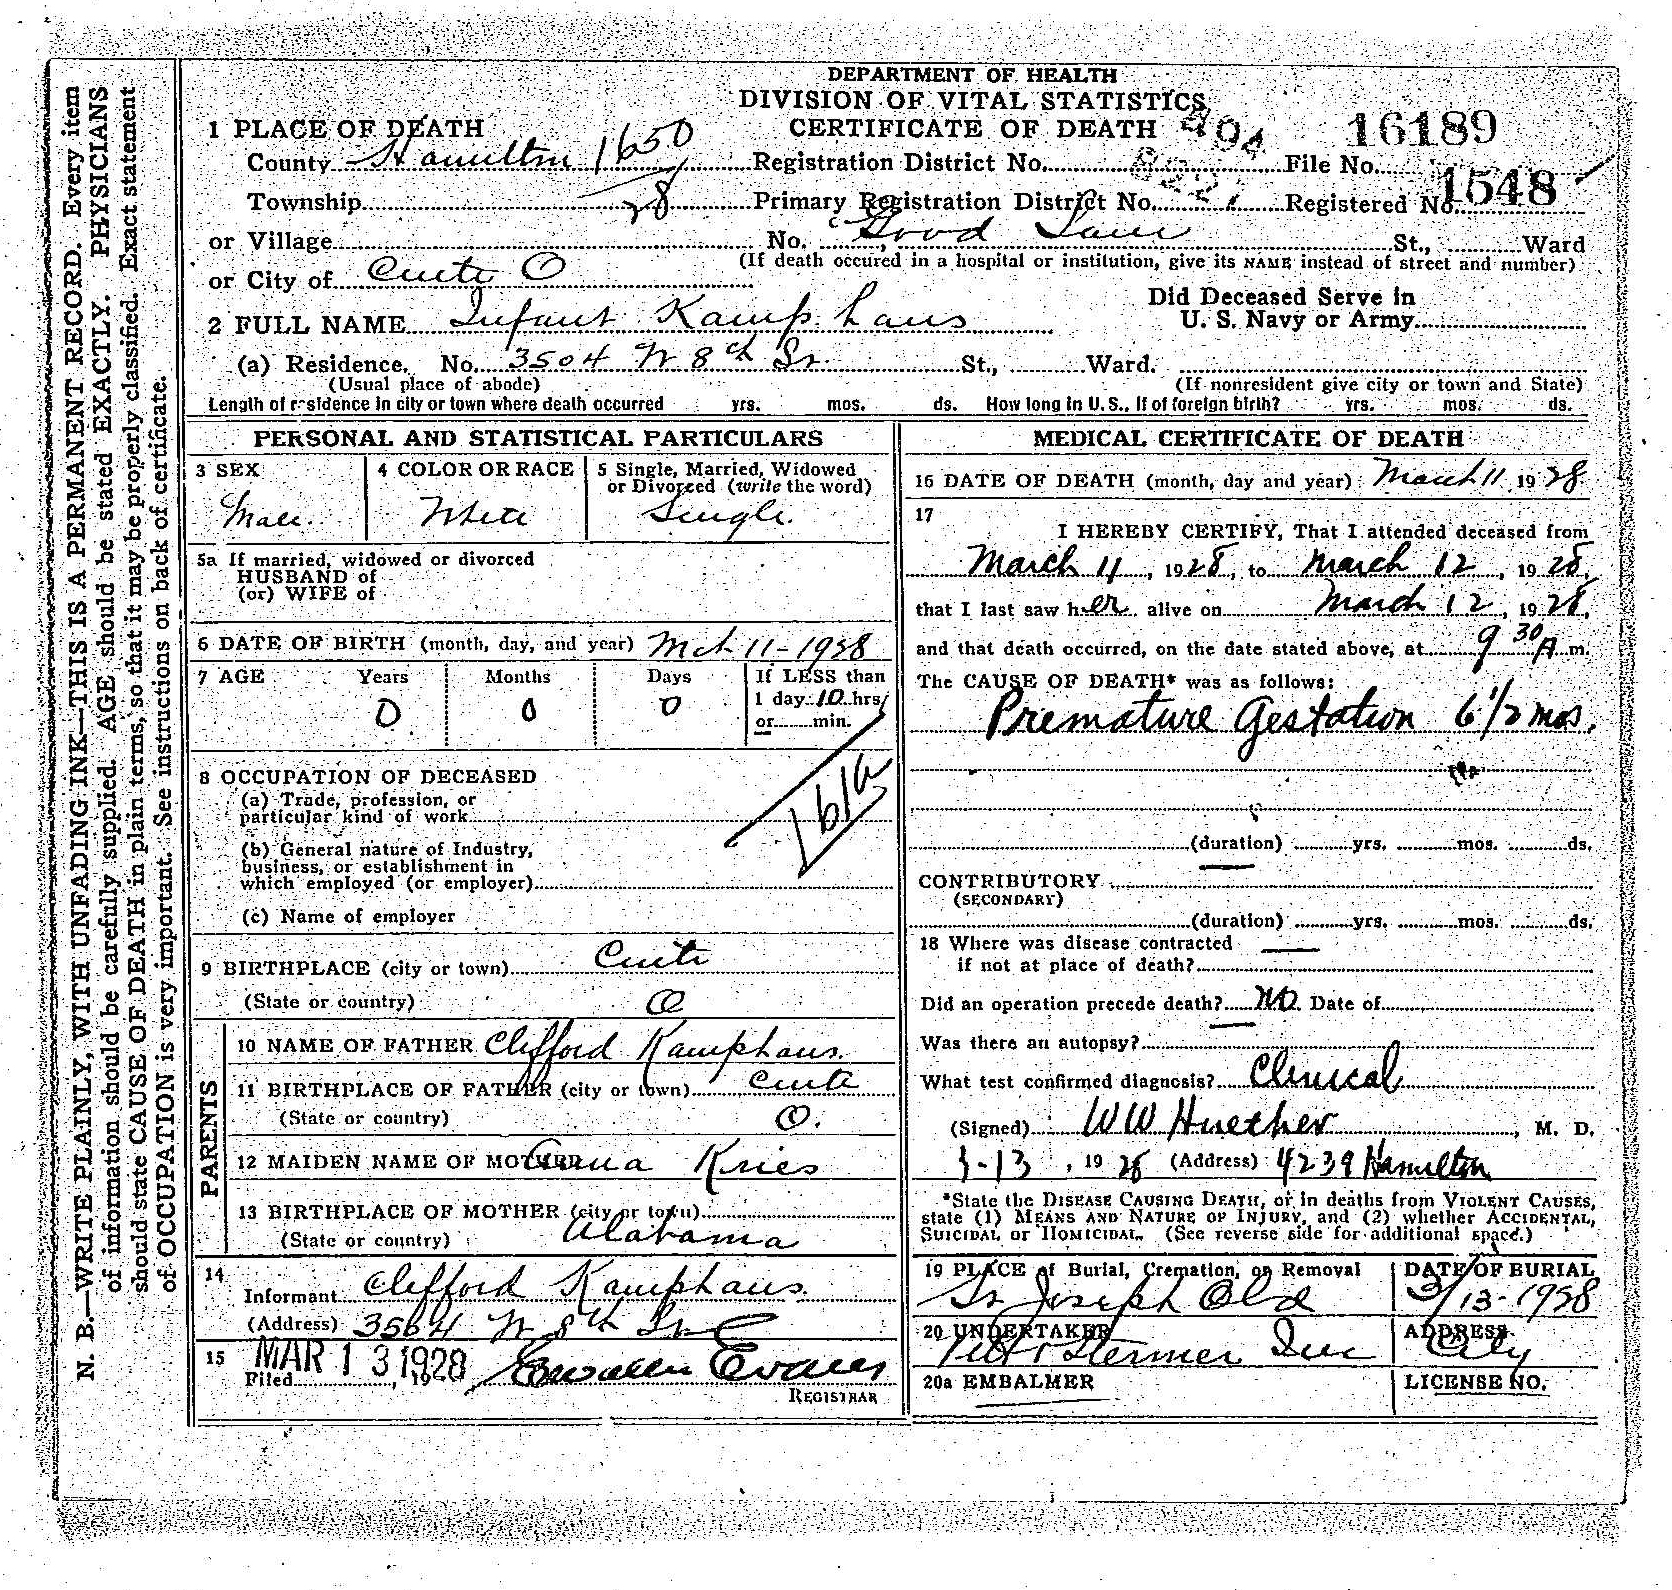 DEPARTMENT OF HEALTH
DIVISION OF VITAL STATISTICS
CERTIFICATE OF DEATH
1 PLACE OF DEATH
County Hamilton 1650 Registration District No. 494 File No. 16189
Township 28 Primary Registration District No. Registered No. 1548
or Village No. Good Sam St., Ward
(If death occured in a hospital or institution, give its NAME instead of street and number)
or City of Cinti O
Did Deceased Serve in
U. S. Navy or Army
2 FULL NAME Infant Kamphaus
(a) Residence. No. 3504 W 8th St. St., Ward.
(Usual place of abode) (If nonresident give city or town and State)
Length of residence in city or town where death occurred yrs. mos. ds. How long in U. S., if of foreign birth? yrs. mos. ds.
PERSONAL AND STATISTICAL PARTICULARS
3 SEX 4 COLOR OR RACE 5 Single, Married, Widowed
or Divorced (write the word)
Male. White Single.
5a If married, widowed or divorced
HUSBAND of
(or) WIFE of
6 DATE OF BIRTH (month, day, and year) Mch 11-1928
7 AGE Years Months Days If LESS than
0 0 0 1 day 10 hrs
or min.
161a
8 OCCUPATION OF DECEASED
(a) Trade, profession, or
particular kind of work
(b) General nature of Industry,
business, or establishment in
which employed (or employer)
(c) Name of employer
9 BIRTHPLACE (city or town) Cinti
(State or country) O
PARENTS
10 NAME OF FATHER Clifford Kamphaus.
11 BIRTHPLACE OF FATHER (city or town) Cinti
(State or country) O.
12 MAIDEN NAME OF MOTHER Anna Kries
13 BIRTHPLACE OF MOTHER (city or town)
(State or country) Alabama
14
Informant Clifford Kamphaus.
(Address) 3504 W 8th St
15 MAR 13 1928
Filed , 19 Evans
REGISTRAR
MEDICAL CERTIFICATE OF DEATH
16 DATE OF DEATH (month, day and year) March 11, 1928
17
I HEREBY CERTIFY, That I attended deceased from
March 11, 1928, to March 12, 1928,
that I last saw her alive on March 12, 1928,
and that death occurred, on the date stated above, at 9 30 A m.
The CAUSE OF DEATH* was as follows:
Premature Gestation 6 1/2 mos.
(duration) yrs. mos. ds.
CONTRIBUTORY
(SECONDARY)
(duration) yrs. mos. ds.
18 Where was disease contracted
if not at place of death?
Did an operation precede death? NO. Date of
Was there an autopsy?
What test confirmed diagnosis? Clinical
(Signed) WW Huether, M. D.
3-13, 1928 (Address) 4239 Hamilton
*State the DISEASE CAUSING DEATH, or in deaths from VIOLENT CAUSES,
state (1) MEANS AND NATURE OF INJURY, and (2) whether ACCIDENTAL,
SUICIDAL or HOMICIDAL. (See reverse side for additional space.)
19 PLACE of Burial, Cremation, or Removal DATE OF BURIAL
St Joseph Old 3/13-1928
20 UNDERTAKER ADDRESS
Stermer Inc City
20a EMBALMER LICENSE NO.
N. B.—WRITE PLAINLY, WITH UNFADING INK—THIS IS A PERMANENT RECORD. Every item
of information should be carefully supplied. AGE should be stated EXACTLY. PHYSICIANS
should state CAUSE OF DEATH in plain terms, so that it may be properly classified. Exact statement
of OCCUPATION is very important. See instructions on back of certificate.